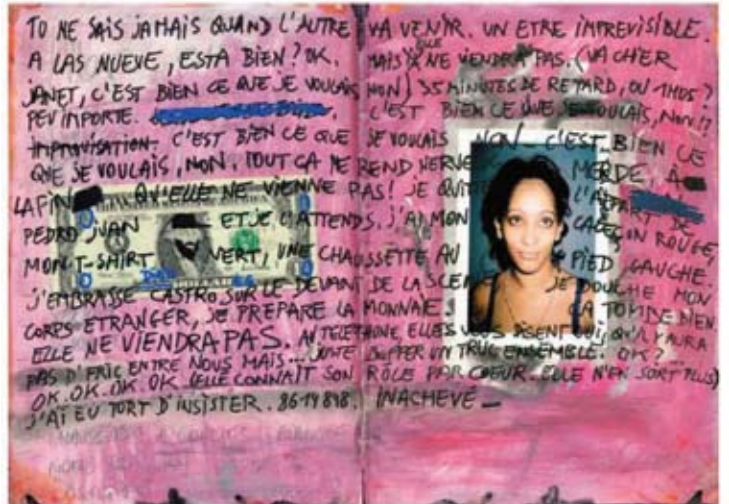 TU NE SAIS JAMAIS QUAND L'AUTRE VA VENIR. UN ETRE IMPREVISIBLE.
A LAS NUEVE, ESTA BIEN? OK. MAIS ELLE NE VIENDRA PAS. (VA CHER
JANET, C'EST BIEN CE QUE JE VOULAIS NON) 35 MINUTES DE RETARD, OU 1H05?
PEU IMPORTE. C'EST BIEN CE QUE JE VOULAIS, NON!?
IMPROVISATION. C'EST BIEN CE QUE JE VOULAIS NON C'EST BIEN CE
QUE JE VOULAIS, NON. TOUT ÇA ME REND NERVE MERDE, À
LA FIN QU'ELLE NE VIENNE PAS! JE QUITTE L'APPART DE
PEDRO JUAN ET JE L'ATTENDS, J'AI MON CALEÇON ROUGE,
MON T-SHIRT VERT, UNE CHAUSSETTE AU PIED GAUCHE.
J'EMBRASSE CASTRO SUR LE DEVANT DE LA SCENE JE DOUCHE MON
CORPS ETRANGER, JE PREPARE LA MONNAIE. ÇA TOMBE BIEN.
ELLE NE VIENDRA PAS. AU TELEPHONE, ELLES VOUS DISENT OUI, QU'IL Y AURA
PAS D'FRIC ENTRE NOUS MAIS... JUSTE BUFFER UN TRUC ENSEMBLE. OK?...
OK. OK. OK. OK. (ELLE CONNAIT SON RÔLE PAR COEUR. ELLE N'EN SORT PLUS)
J'AI EU TORT D'INSISTER. 8614898. INACHEVÉ_